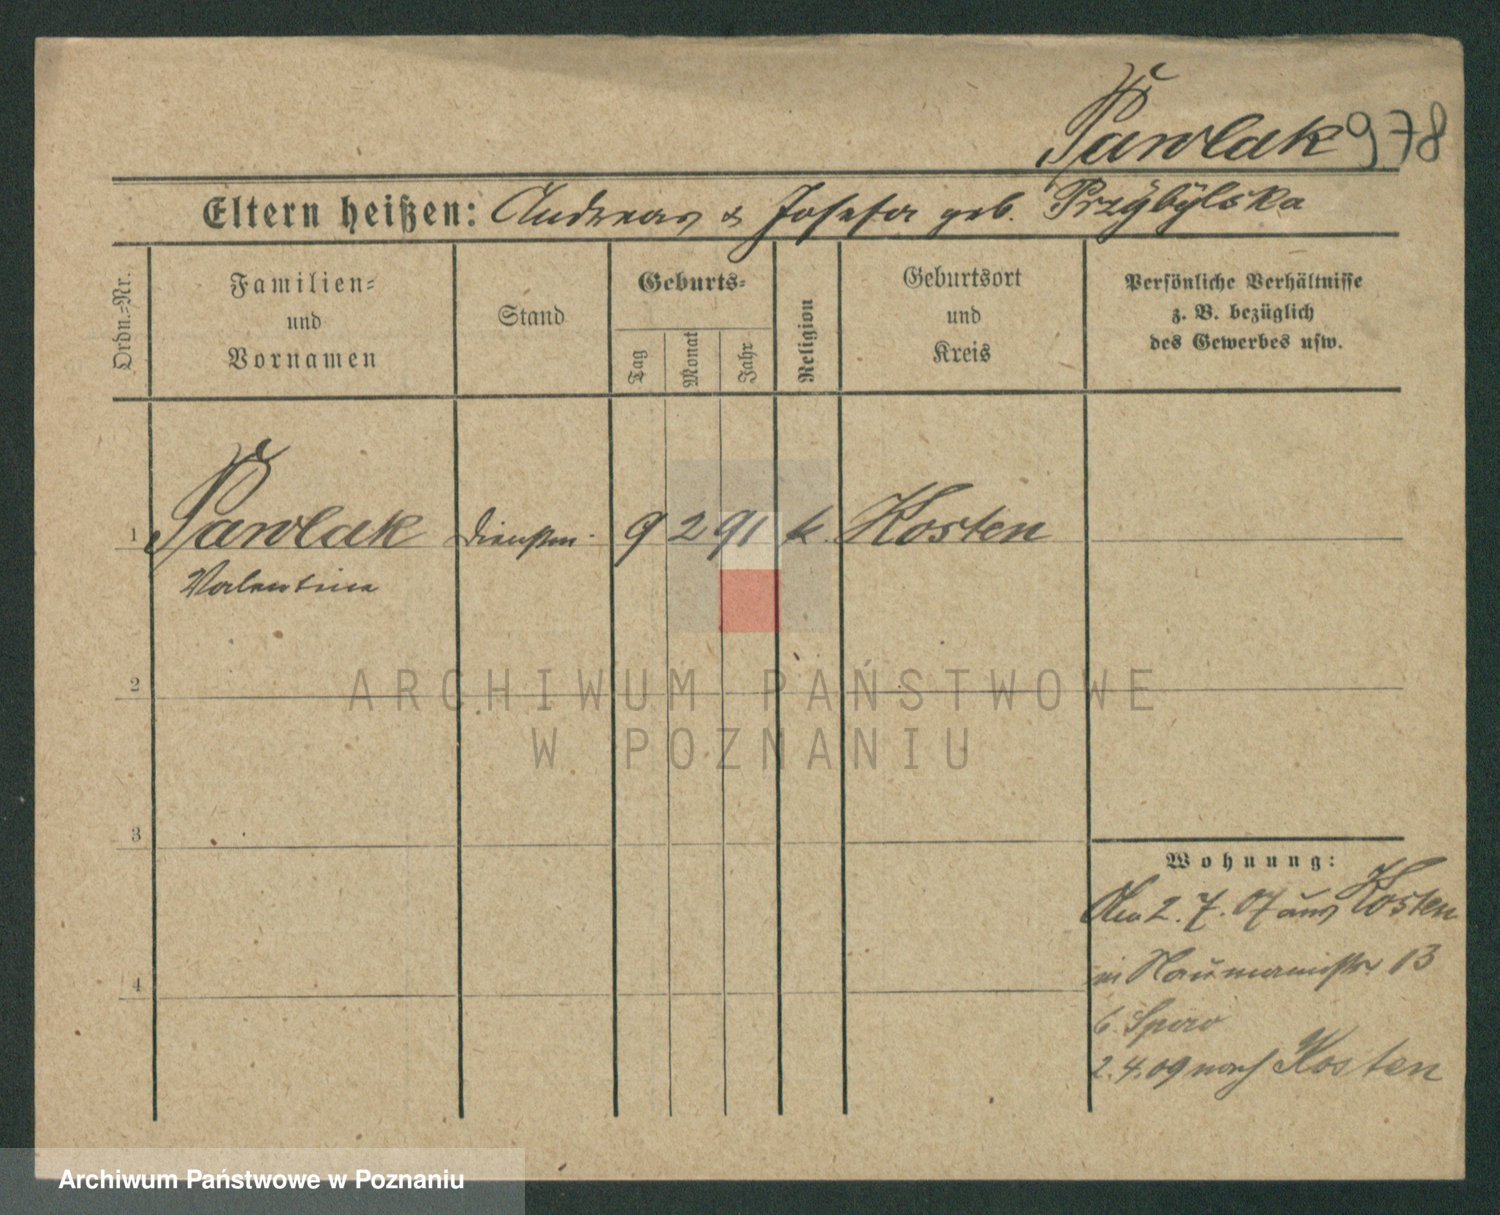 Pawlak 978
Eltern heißen: Andreas & Josefa geb. Przybylska
Ordn.-Nr.
Familien-
und
Vornamen
Stand
Geburts-
Tag
Monat
Jahr
Religion
Geburtsort
und
Kreis
Persönliche Verhältnisse
z. B. bezüglich
des Gewerbes usw.
1 Pawlak 9 2 91 k. Kosten
Valentina
2
ARCHIWUM PAŃSTWOWE
W POZNANIU
3
Wohnung:
2. 7. 07 aus Kosten
in Naumannstr 13
b. Spiro
2. 4. 09 nach Kosten
4
Archiwum Państwowe w Poznaniu